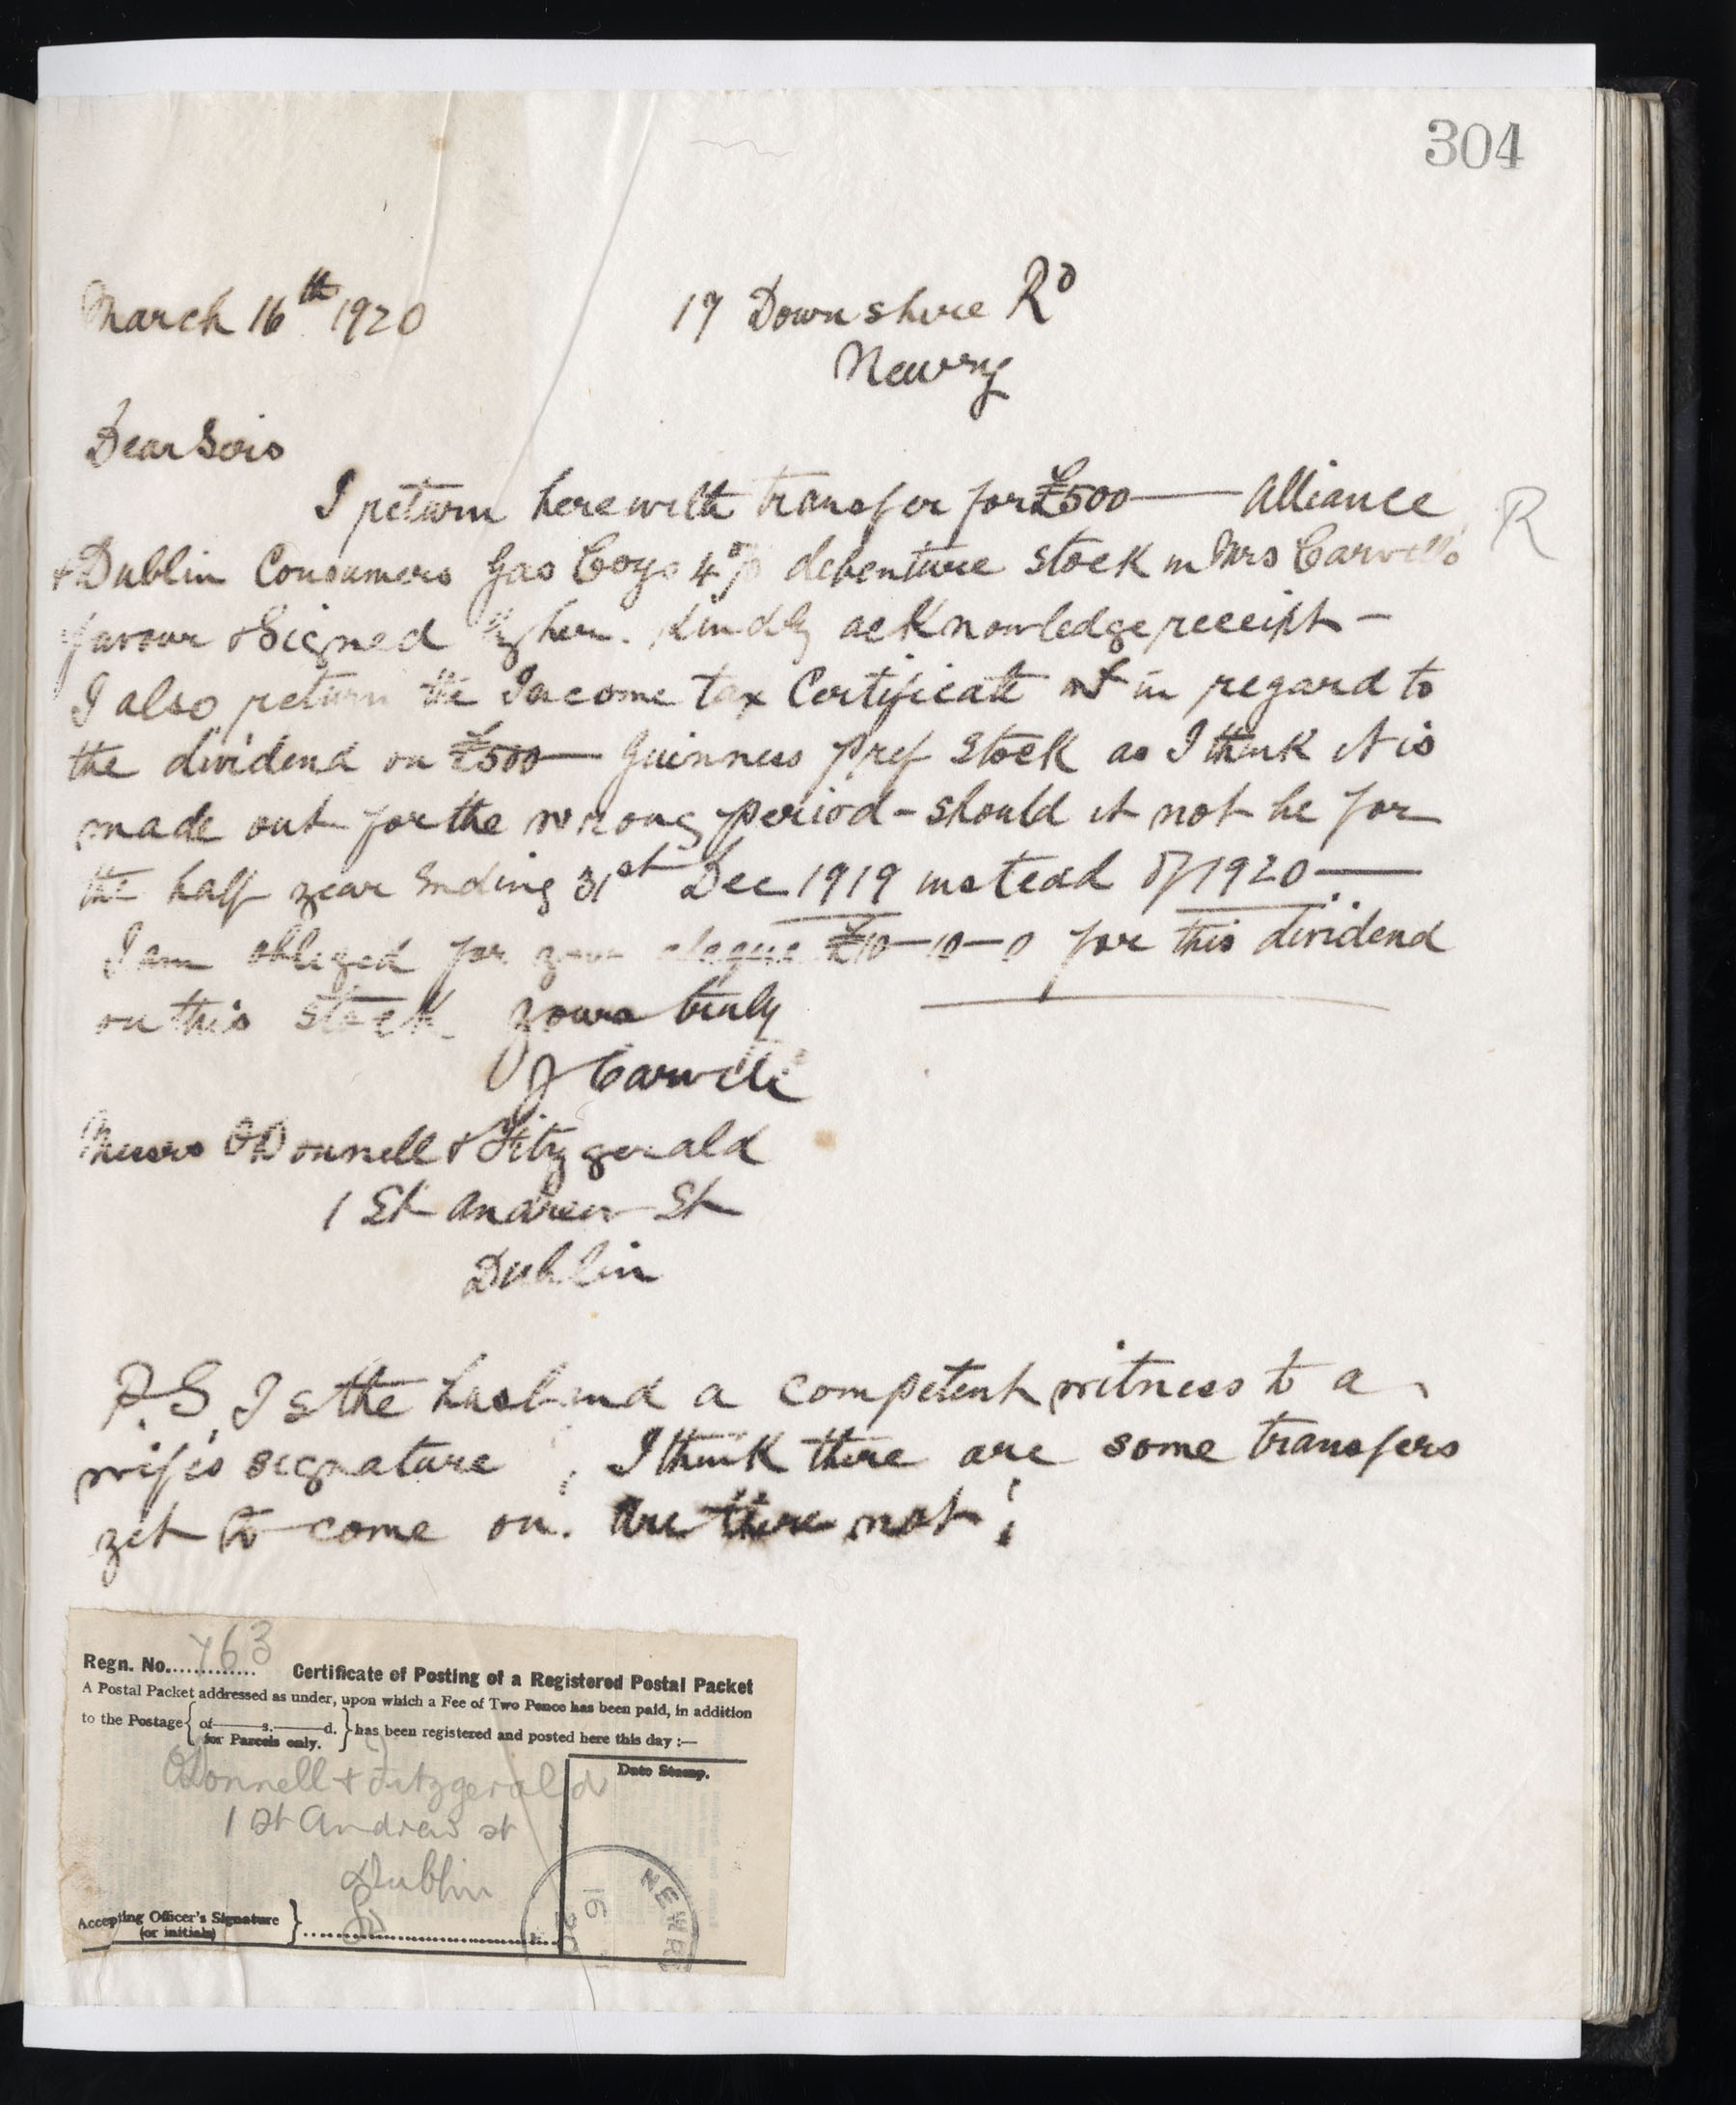 304
March 16th 1920
17 Downshire Rd
Newry
Dear Sirs
I return herewith transfer for £500 — Alliance
R
& Dublin Consumers Gas Coys 4% debenture stock in Mrs Carvill's
favour & signed by her. Kindly acknowledge receipt —
I also return the Income tax Certificate in regard to
the dividend on £500 — Guinness Pref Stock as I think it is
made out for the wrong period - should it not be for
the half year Ending 31st Dec 1919 instead of 1920 —
I am obliged for your cheque £10-10-0 for this dividend
on this stock. Yours truly
J Carvill
Messrs O'Donnell & Fitzgerald
1 St Andrew St
Dublin
P.S. Is the husband a competent witness to a
wife's signature, I think there are some transfers
yet to come on. Are there not?
Regn. No. 763 Certificate of Posting of a Registered Postal Packet
A Postal Packet addressed as under, upon which a Fee of Two Pence has been paid, in addition
to the Postage { of ——s.——d. } has been registered and posted here this day :—
for Parcels only.
Date Stamp.
ODonnell & Fitzgerald
1 St Andrew st
Dublin
NEWR
16
20
Accepting Officer's Signature }
(or initials)